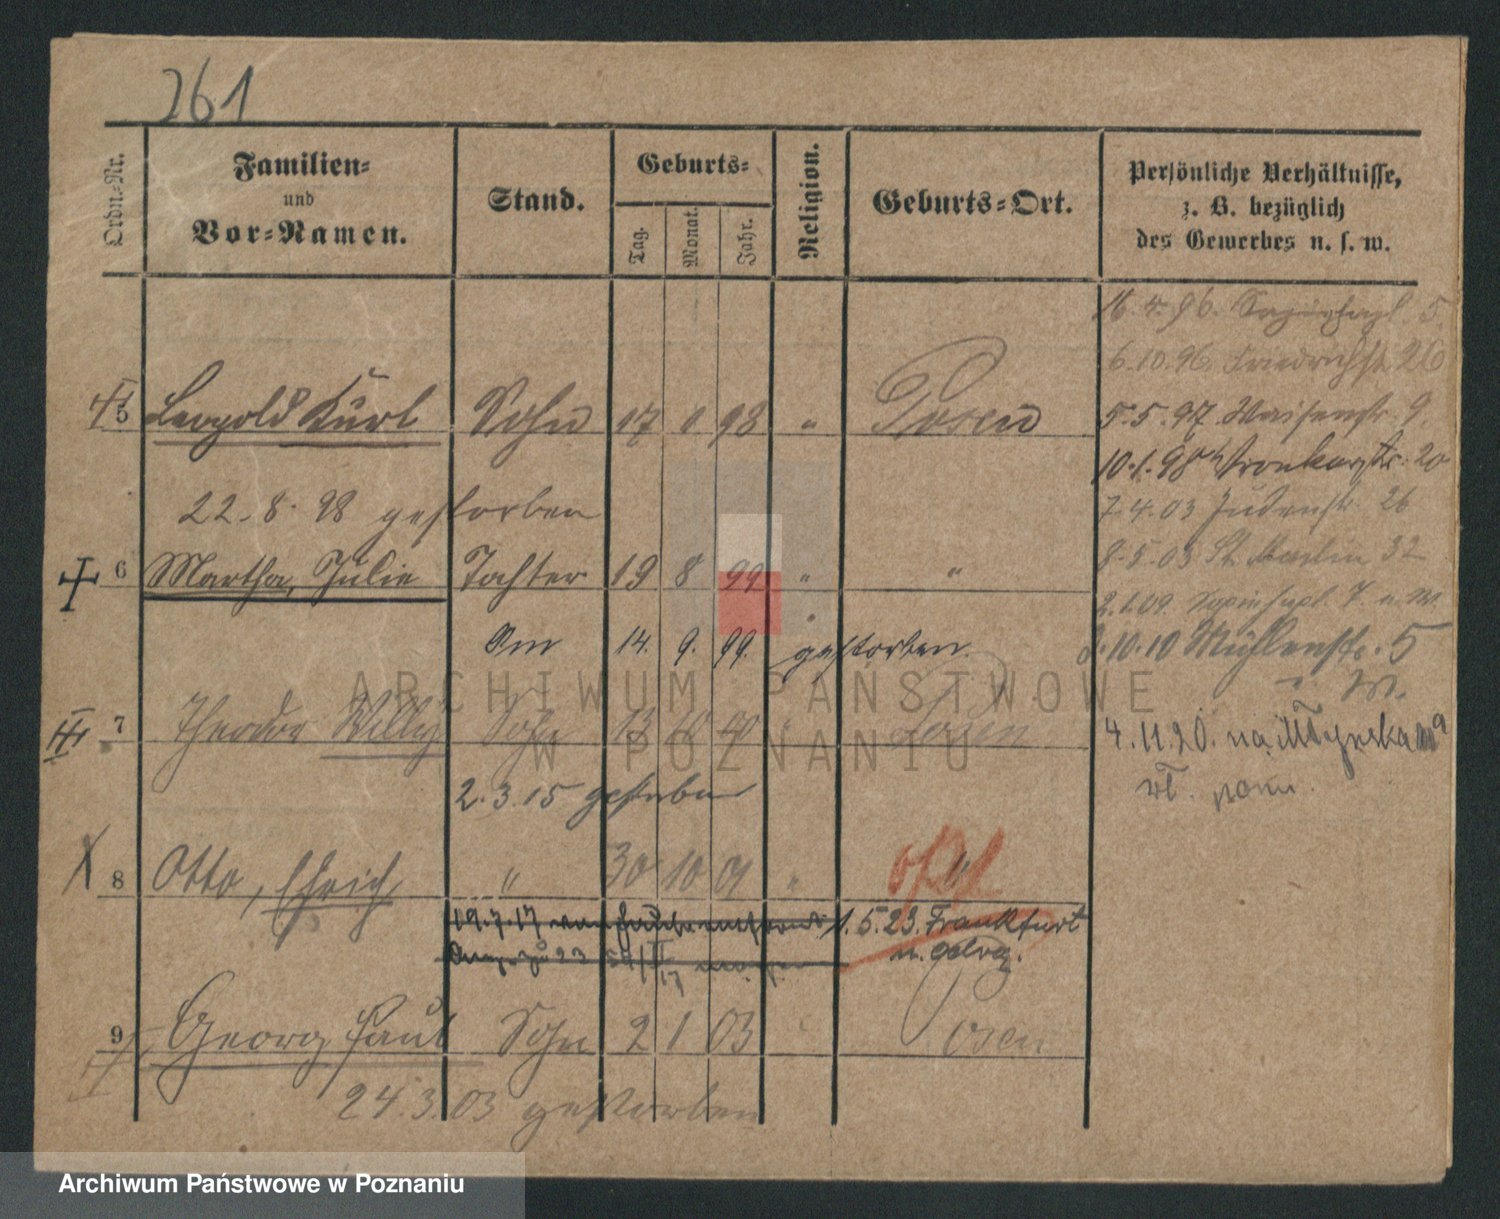 261
Ordn.-Nr.
Familien-
und
Vor-Namen.
Stand.
Geburts-
Tag.
Monat.
Jahr.
Religion.
Geburts-Ort.
Persönliche Verhältnisse,
z. B. bezüglich
des Gewerbes u. s. w.
16.4.96. Sapiehapl. 5.
6.10.96. Friedrichstr. 26
5.5.97 Waisenstr. 9.
10.1.98 Wronkerstr. 20
7.4.03 Judenstr. 26
8.5.03 St. Martin 32
2.1.09. Sapiehapl. 7. u. W.
3.10.10 Mühlenstr. 5
u. W.
4.11.20. na Młyńska
5 Leopold Kurt Sohn 17 1 98 " Posen
22.8.98 gestorben
6 Martha, Julie Tochter 19 8 99 " "
Am 14. 9. 99. gestorben.
7 Theodor Willy Sohn 13 10 00 " Posen
2.3.15 gestorben
8 Otto, Ehrich, " 30 10 01 " "
19.7.17 1.5.23. Frankfurt
9 Georg Paul Sohn 2 1 03 " Posen
24.3.03 gestorben
ARCHIWUM PAŃSTWOWE
W POZNANIU
Archiwum Państwowe w Poznaniu